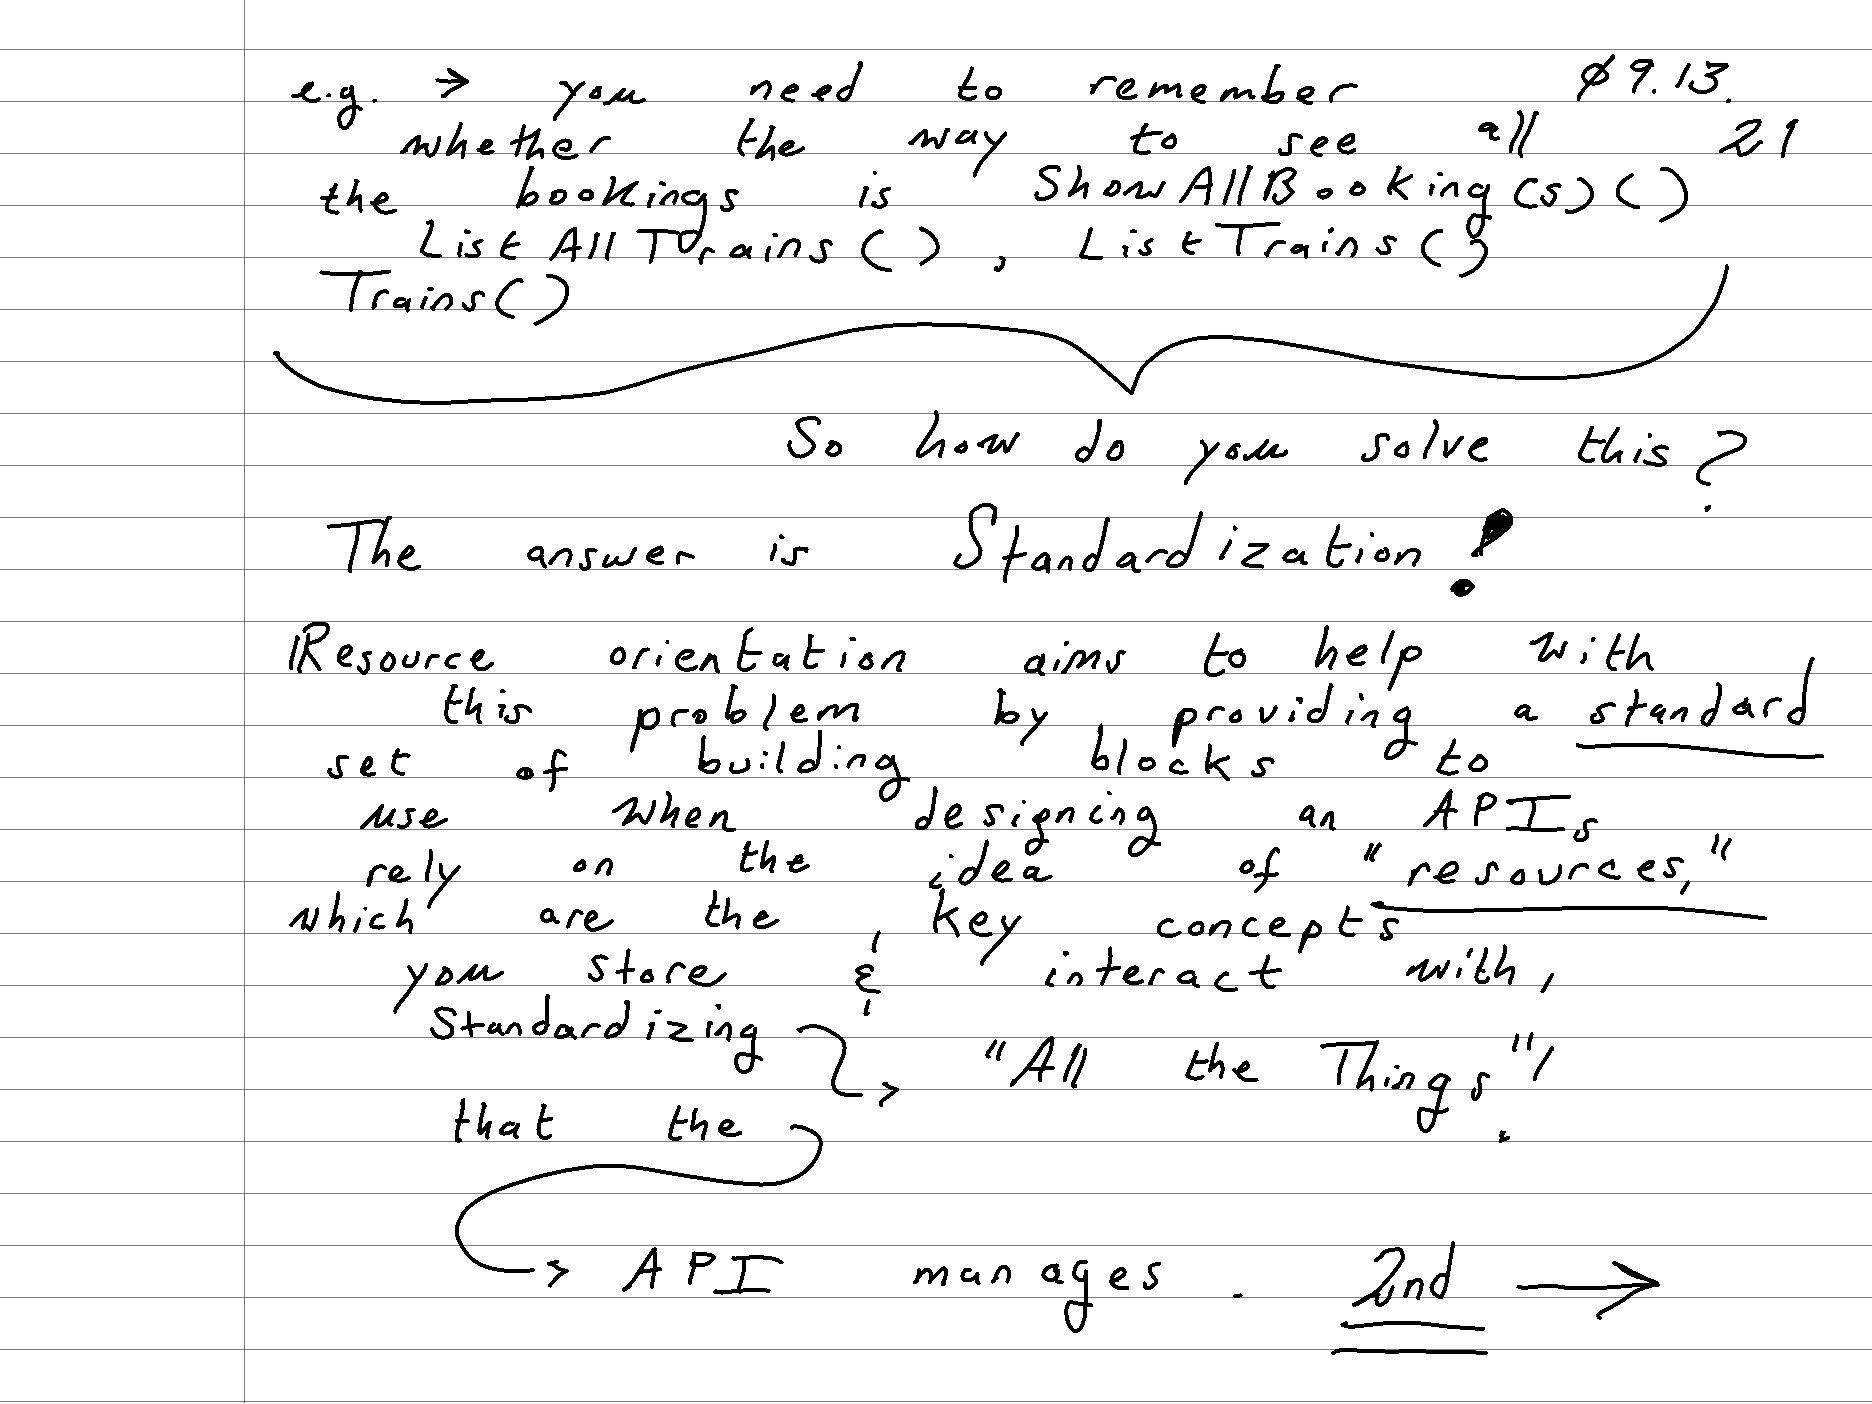 e.g. → you need to remember ø9.13.
whether the way to see all 21
the bookings is ShowAllBooking(s)()
ListAllTrains(), ListTrains()
Trains()
So how do you solve this?
The answer is Standardization!
Resource orientation aims to help with
this problem by providing a standard
set of building blocks to
use when designing an APIs
rely on the idea of "resources,"
which are the key concepts
you store & interact with,
Standardizing
"All the Things"
that the
API manages. 2nd →